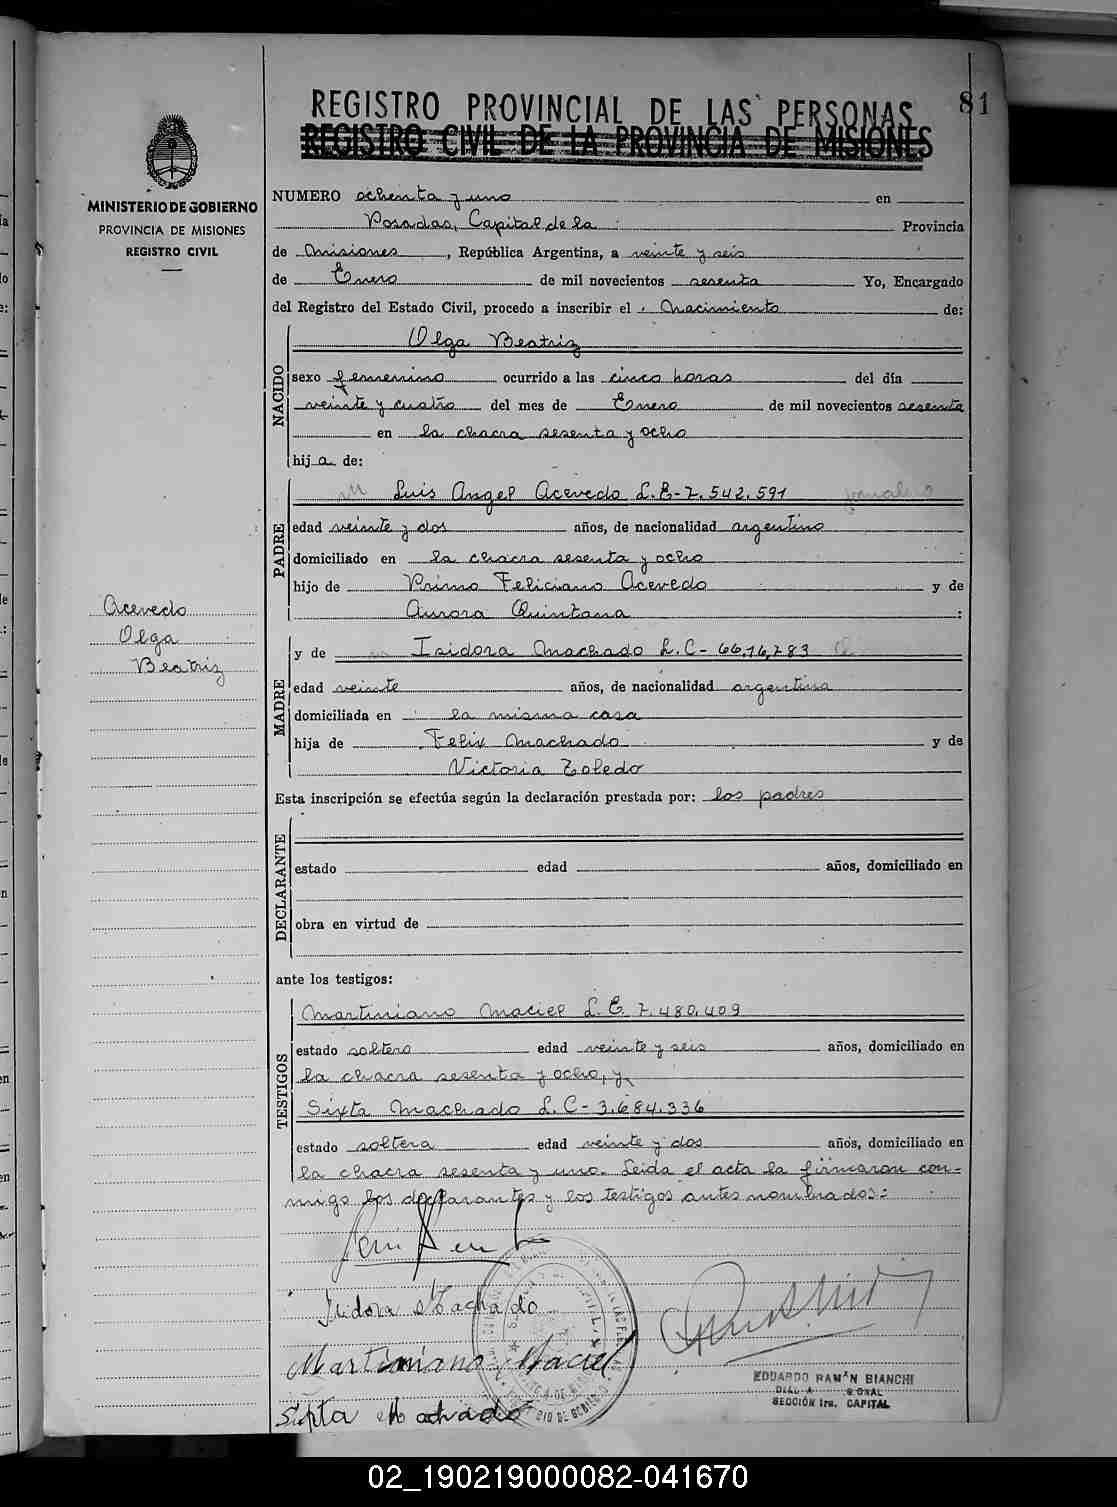 81
REGISTRO PROVINCIAL DE LAS PERSONAS
REGISTRO CIVIL DE LA PROVINCIA DE MISIONES
MINISTERIO DE GOBIERNO
PROVINCIA DE MISIONES
REGISTRO CIVIL
NUMERO ochenta y uno en
Posadas, Capital de la Provincia
de Misiones, República Argentina, a veinte y seis
de Enero de mil novecientos sesenta Yo, Encargado
del Registro del Estado Civil, procedo a inscribir el Nacimiento de:
NACIDO
Olga Beatriz
sexo femenino ocurrido a las cinco horas del día
veinte y cuatro del mes de Enero de mil novecientos sesenta
en la chacra sesenta y ocho
hija de:
PADRE
Luis Angel Acevedo L.E-7.542.591 jornalero
edad veinte y dos años, de nacionalidad argentino
domiciliado en la chacra sesenta y ocho
hijo de Primo Feliciano Acevedo y de
Aurora Quintana
Acevedo
Olga
Beatriz
MADRE
y de Isidora Machado L.C-6616,283
edad veinte años, de nacionalidad argentina
domiciliada en la misma casa
hija de Felix Machado y de
Victoria Toledo
Esta inscripción se efectúa según la declaración prestada por: los padres
DECLARANTE
estado edad años, domiciliado en
obra en virtud de
ante los testigos:
TESTIGOS
Martiniano Maciel L.E. 7.480.409
estado soltero edad veinte y seis años, domiciliado en
la chacra sesenta y ocho, y
Sixta Machado L.C-3.684.336
estado soltera edad veinte y dos años, domiciliado en
la chacra sesenta y uno. Leida el acta la firmaron con-
migo los declarantes y los testigos antes nombrados:
Isidora Machado
Martiniano Maciel
Sixta Machado
EDUARDO RAMÓN BIANCHI
SECCIÓN 1ra. CAPITAL
02_190219000082-041670